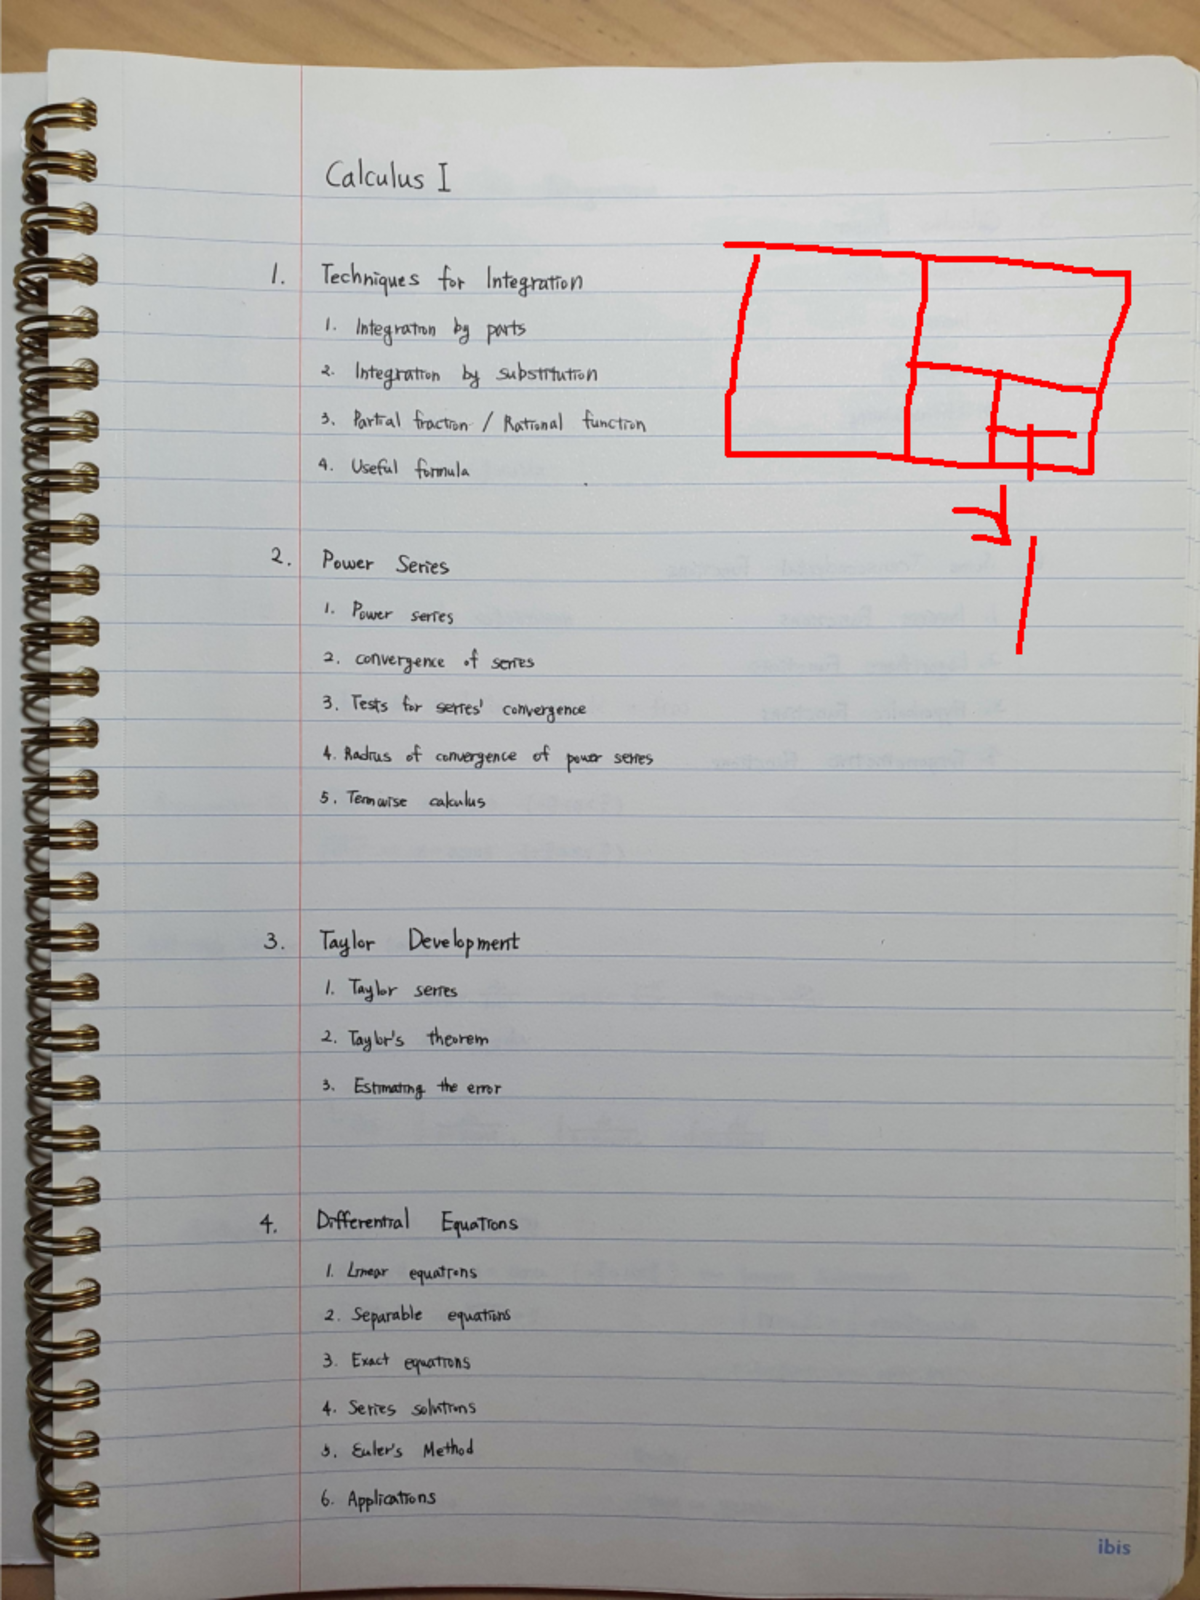 Calculus I
1. Techniques for Integration
1. Integration by parts
2. Integration by substitution
3. Partial fraction / Rational function
4. Useful formula
2. Power Series
1. Power series
2. convergence of series
3. Tests for series' convergence
4. Radius of convergence of power series
5. Termwise calculus
3. Taylor Development
1. Taylor series
2. Taylor's theorem
3. Estimating the error
4. Differential Equations
1. Linear equations
2. Separable equations
3. Exact equations
4. Series solutions
5. Euler's Method
6. Applications
ibis